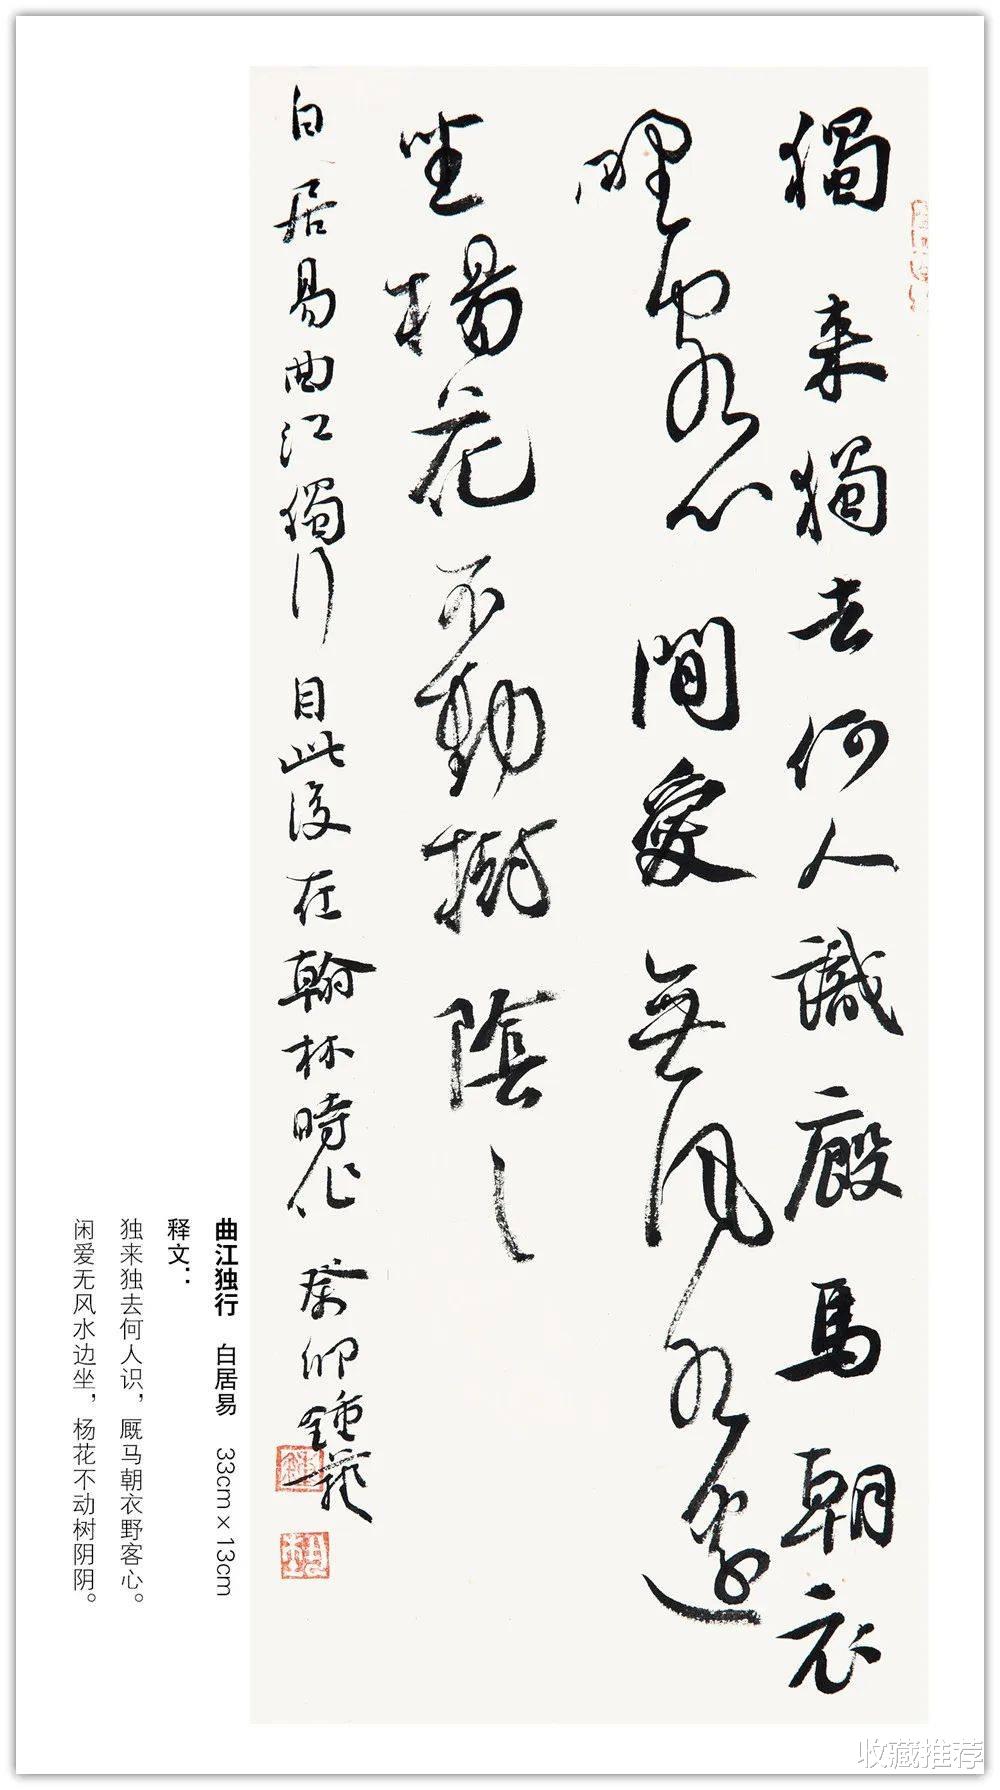 獨来獨去何人識廄馬朝衣
野客心閒愛無风水邊
坐楊花不動樹陰〻
白居易曲江獨行 自此後在翰林時作 癸卯鍾
曲江独行 白居易 33cm×13cm
释文：
独来独去何人识，厩马朝衣野客心。
闲爱无风水边坐，杨花不动树阴阴。
收藏推荐